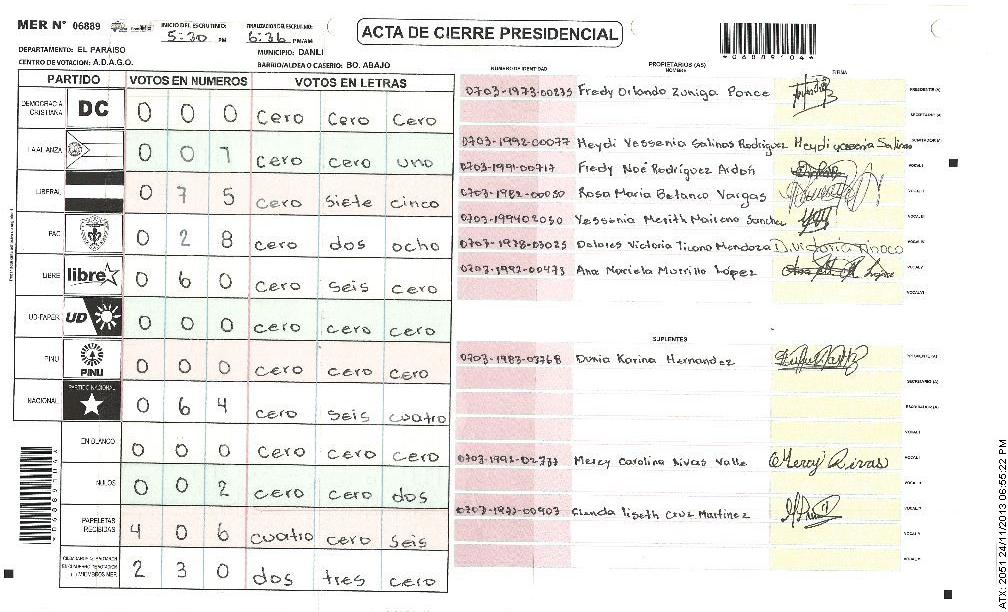 MER N° 06889
INICIO DEL ESCRUTINIO: 5:30 PM
FINALIZACION DEL ESCRUTINIO: 6:36 PM/AM
ACTA DE CIERRE PRESIDENCIAL
*06889104*
DEPARTAMENTO: EL PARAISO
MUNICIPIO: DANLI
CENTRO DE VOTACION: A.D.A.G.O.
BARRIO/ALDEA O CASERIO: BO. ABAJO
PARTIDO VOTOS EN NUMEROS VOTOS EN LETRAS
DEMOCRACIA CRISTIANA DC 0 0 0 cero cero cero
LA ALIANZA 0 0 1 cero cero uno
LIBERAL 0 7 5 cero siete cinco
PAC 0 2 8 cero dos ocho
LIBRE libre 0 6 0 cero seis cero
UD-FAPER UD 0 0 0 cero cero cero
PINU PINU 0 0 0 cero cero cero
NACIONAL PARTIDO NACIONAL 0 6 4 cero seis cuatro
EN BLANCO 0 0 0 cero cero cero
NULOS 0 0 2 cero cero dos
PAPELETAS RECIBIDAS 4 0 6 cuatro cero seis
MIEMBROS MER 2 3 0 dos tres cero
NUMERO DE IDENTIDAD PROPIETARIOS (AS) NOMBRE FIRMA
0703-1973-00235 Fredy Orlando Zuniga Ponce PRESIDENTE (A)
SECRETARIO (A)
0703-1992-00077 Heydi Yessenia Salinas Rodriguez Heydi yessenia Salinas ESCRUTADOR (A)
0703-1991-00717 Fredy Noé Rodríguez Ardon VOCAL I
0703-1982-00050 Rosa Maria Betanco Vargas VOCAL II
0703-199402050 Yessenia Merith Maireno Sanchez VOCAL III
0707-1978-03025 Dolores Victoria Tinoco Mendoza D. Victoria Tinoco VOCAL IV
0703-1992-00473 Ana Mariela Murrillo López VOCAL V
VOCAL VI
SUPLENTES
0703-1983-03768 Dunia Karina Hernandez PRESIDENTE (A)
SECRETARIO (A)
ESCRUTADOR (A)
VOCAL I
0703-1992-02737 Mercy Carolina Rivas Valle Mercy Rivas
0703-1972-00903 Glenda Liseth Cruz Martinez
VOCAL V
ATX: 2051 24/11/2013 06:55:22 PM